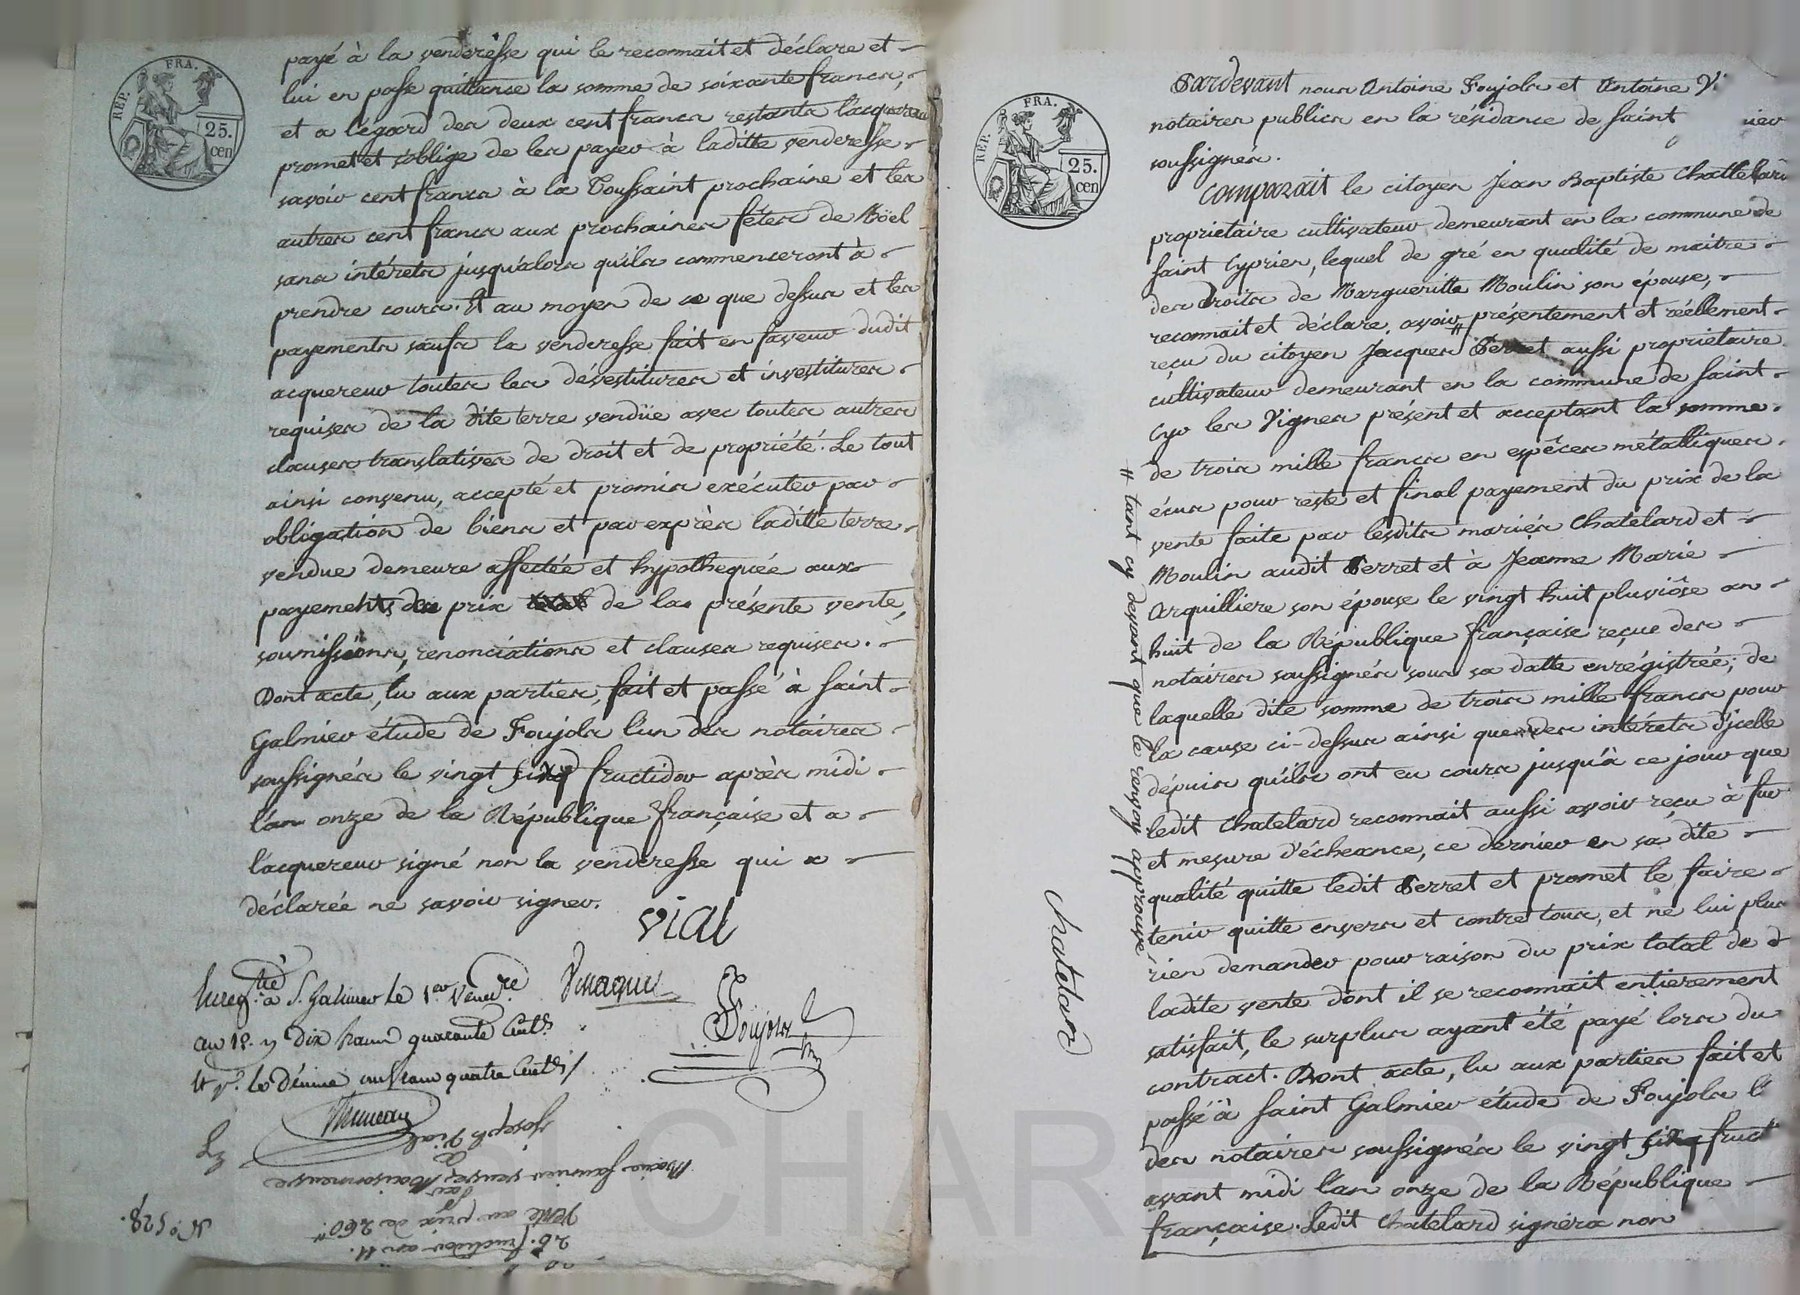 REP. FRA.
25.
cen
payé à la venderesse qui le reconnait et déclare et
lui en passe quittance la somme de soixante francs,
et a l'égard des deux cent francs restants l'acquereur
promet et s'oblige de les payer à laditte venderesse
savoir cent francs à la Toussaint prochaine et les
autres cent francs aux prochaines fêtes de Nöel
sans intérets jusqu'alors qu'ils commenseront à
prendre cours. Et au moyen de ce que dessus et les
payements saufs la venderesse fait en faveur dudit
acquereur toutes les dévestitures et investitures
requises de la dite terre vendüe avec toutes autres
clauses translatives de droit et de propriété. Le tout
ainsi convenu, accepté et promis exécuter par
obligation de biens et par exprès laditte terre
vendue demeure affectée et hypothequée aux
payements du prix de la présente vente,
soumissions, renonciations et clauses requises.
Dont acte, lu aux parties, fait et passé à Saint
Galmier étude de Foujols l'un des notaires
soussignés le vingt six fructidor après midi
l'an onze de la République française et a
l'acquereur signé non la venderesse qui a
déclarée ne savoir signer.
vial
Enreg.tré à S. Galmier le 1.er Vendre.
an 12. dix francs quarante Cent.s
et pr. le Décime un franc quatre Cent.s
Foujols
Joseph Vial
par
Marie Jaunier veuve Maisonneuve
Vente au prix de 260
26. fructidor an 11.
N.o 528.
REP. FRA.
25.
cen
Pardevant nous Antoine Foujols et Antoine V.
notaires publics en la résidance de Saint
soussignés.
Comparait le citoyen Jean Baptiste Chattelard
propriétaire cultivateur demeurant en la commune de
Saint Cyprien, lequel de gré en qualité de maitre
des droits de Margueritte Moulin son épouse,
reconnait et déclare, avoir # présentement et réellement
reçu du citoyen Jacques Perret aussi propriétaire
cultivateur demeurant en la commune de Saint
Cyr les Vignes présent et acceptant la somme
de trois mille francs en espêces métalliques
écus pour reste et final payement du prix de la
vente faite par lesdits mariés Chatelard et
Moulin audit Perret et à Jeanne Marie
Arquilliere son épouse le vingt huit pluviôse an
huit de la République française reçue des
notaires soussignés sous sa datte enrégistrée; de
laquelle dite somme de trois mille francs pour
la cause ci-dessus ainsi que des intérets d'jcelle
dépuis qu'ils ont eu cours jusqu'à ce jour que
ledit Chatelard reconnait aussi avoir reçu à fur
et mesure d'écheance, ce dernier en sa dite
qualité quitte ledit Perret et promet le faire
tenir quitte envers et contre tous, et ne lui plus
rien demander pour raison du prix total de
ladite vente dont il se reconnait entièrement
satisfait, le surplus ayant été payé lors du
contract. Dont acte, lu aux parties fait et
passé à Saint Galmier étude de Foujols l'
des notaires soussignés le vingt six fruct
avant midi l'an onze de la République
française. Ledit Chatelard signéra non
# tant cy devant que le renvoy approuvé
chatelard